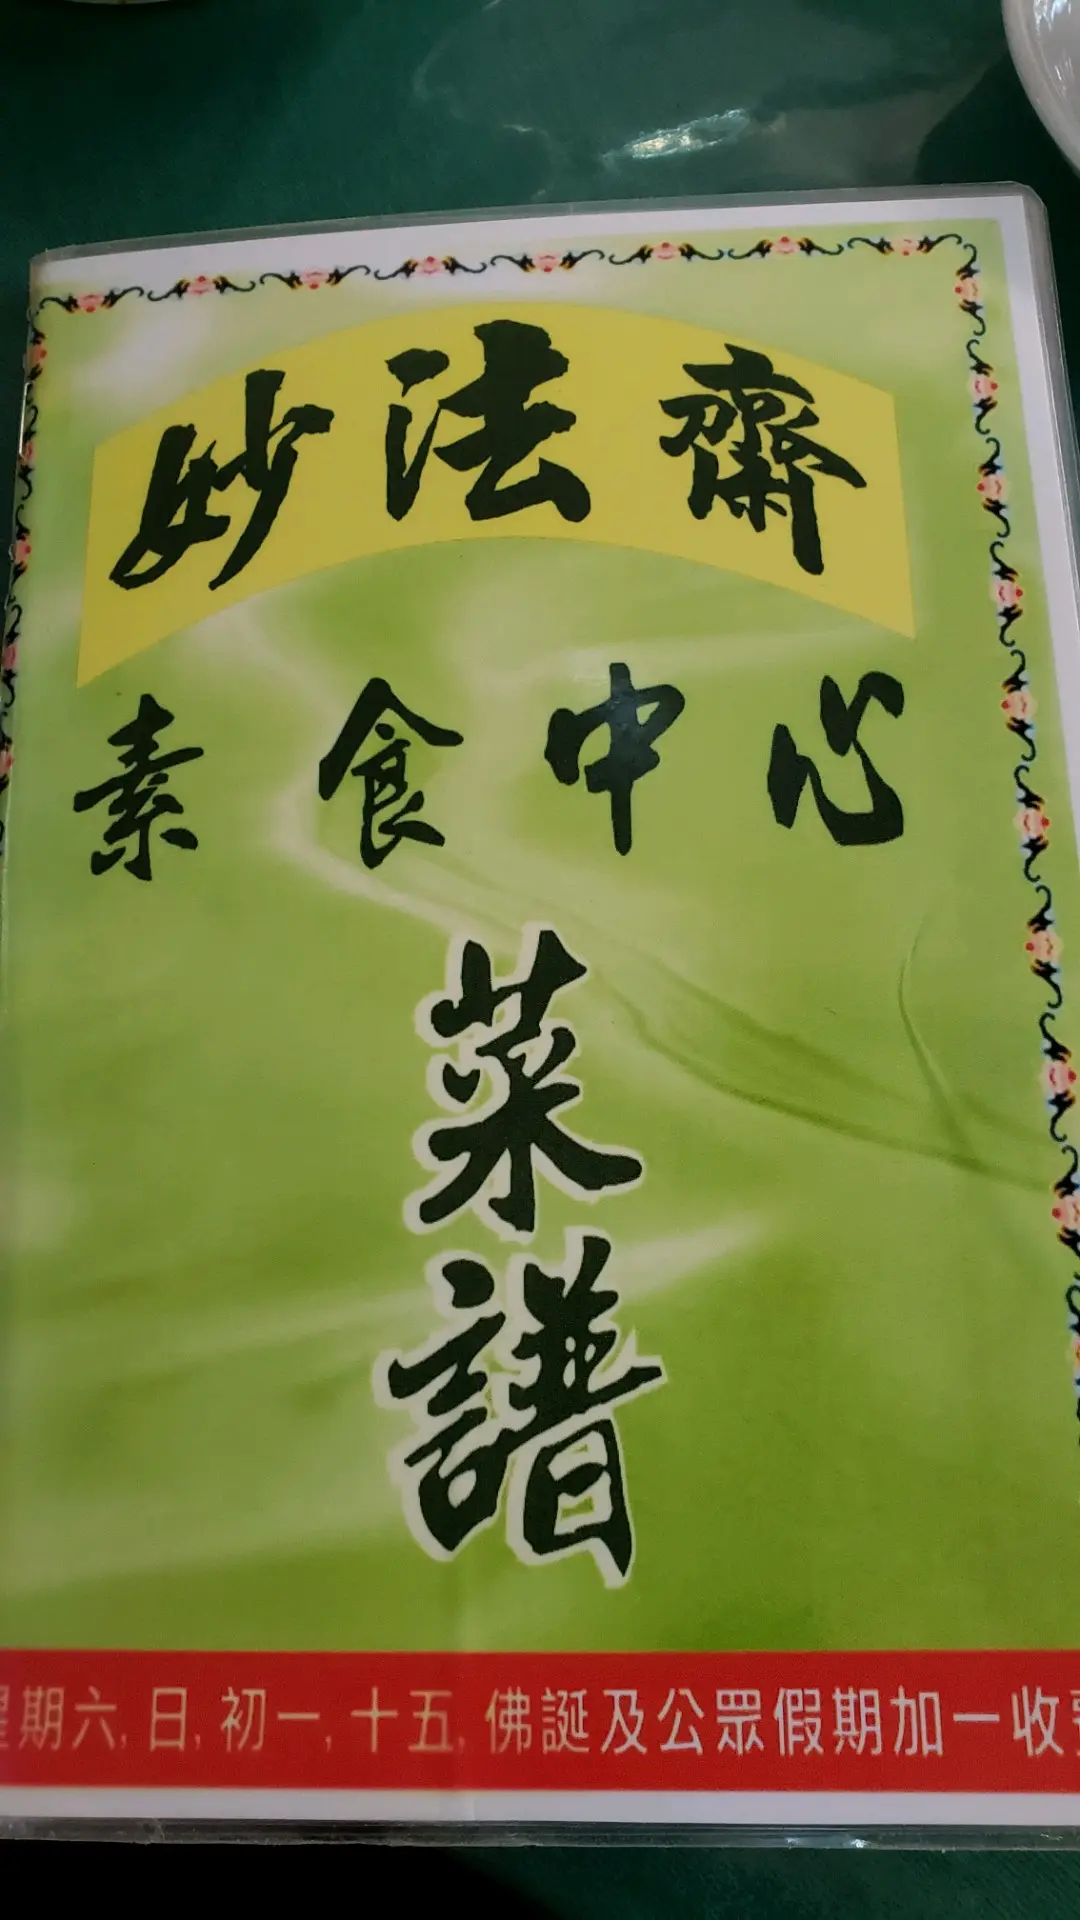 妙法齋
素食中心
菜譜
星期六, 日, 初一, 十五, 佛誕及公眾假期加一收費